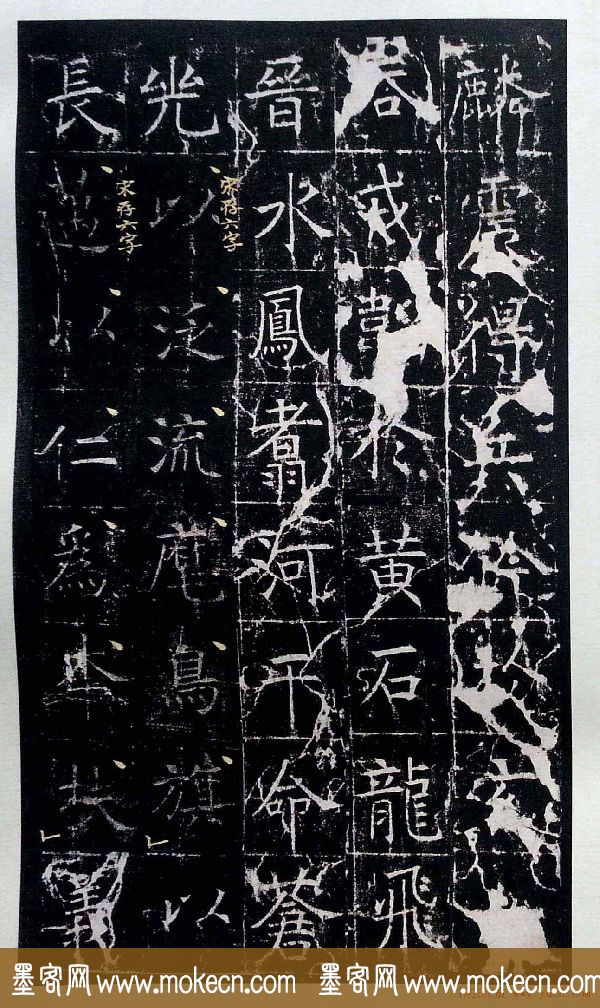 麟得兵鈐於玄
戒韜於黃石龍飛
晉水鳳翥河干命蒼
兕以泛流麾鳥旗以
宋存六字
長邁以仁爲本義
宋存六字
墨客网 www.mokecn.com 墨客网 www.mokecn.com